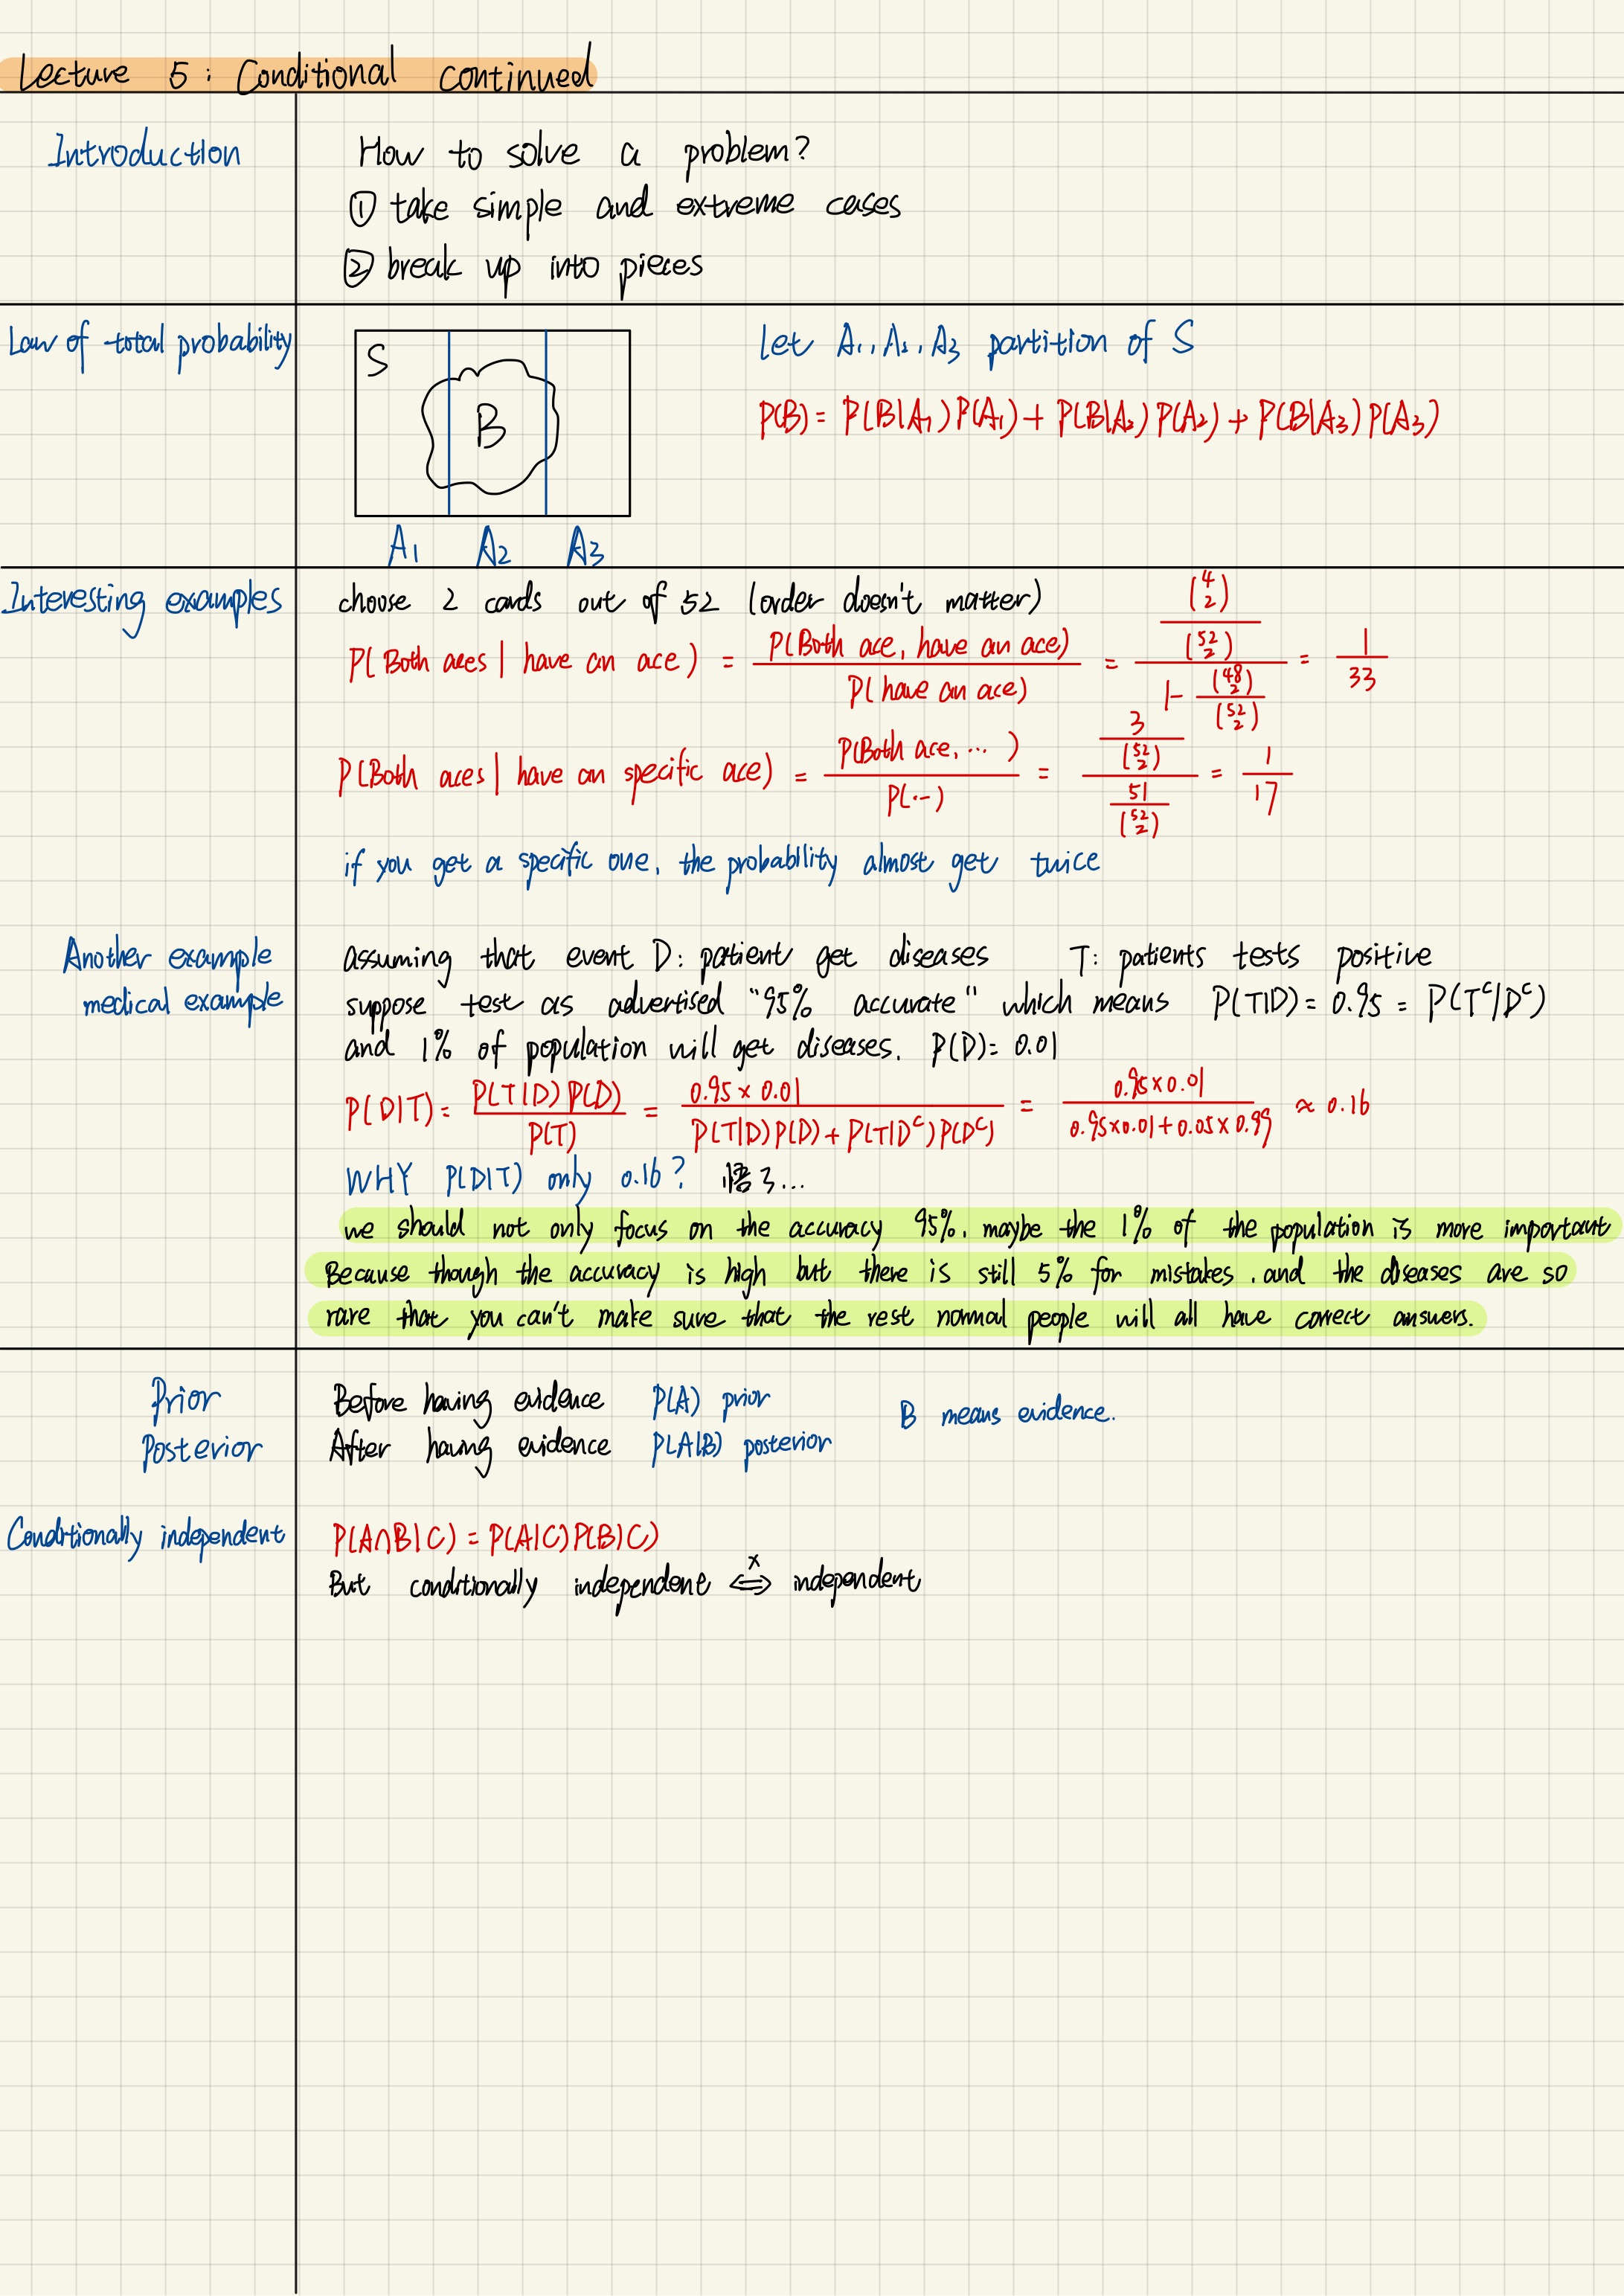 Lecture 5 : Conditional continued
Introduction
How to solve a problem?
① take simple and extreme cases
② break up into pieces
Law of total probability
S
B
A₁ A₂ A₃
let A₁, A₂, A₃ partition of S
P(B) = P(B|A₁)P(A₁) + P(B|A₂)P(A₂) + P(B|A₃)P(A₃)
Interesting examples
choose 2 cards out of 52 (order doesn't matter)
P(Both aces | have an ace) = P(Both ace, have an ace) / P(have an ace) = (4 2)/(52 2) / 1 - (48 2)/(52 2) = 1/33
P(Both aces | have an specific ace) = P(Both ace, ...) / P(...) = 3/(52 2) / 51/(52 2) = 1/17
if you get a specific one, the probability almost get twice
Another example
medical example
assuming that event D: patient get diseases T: patients tests positive
suppose test as advertised "95% accurate" which means P(T|D) = 0.95 = P(Tᶜ|Dᶜ)
and 1% of population will get diseases. P(D) = 0.01
P(D|T) = P(T|D)P(D) / P(T) = 0.95 × 0.01 / P(T|D)P(D) + P(T|Dᶜ)P(Dᶜ) = 0.95×0.01 / 0.95×0.01+0.05×0.99 ≈ 0.16
WHY P(D|T) only 0.16? 悟了...
we should not only focus on the accuracy 95%, maybe the 1% of the population is more important
Because though the accuracy is high but there is still 5% for mistakes, and the diseases are so
rare that you can't make sure that the rest normal people will all have correct answers.
Prior
Before having evidence P(A) prior
B means evidence.
Posterior
After having evidence P(A|B) posterior
Conditionally independent
P(A∩B|C) = P(A|C)P(B|C)
But conditionally independent ⇔ x independent